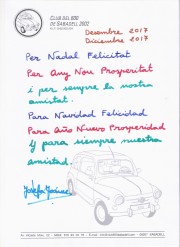 CLUB DEL 600
DE SABADELL 2002
Desembre 2017
Diciembre 2017
Per Nadal Felicitat
Per Any Nou Prosperitat
i per sempre la nostra
amistat.
Para Navidad Felicidad
Para Año Nuevo Prosperidad
y para siempre nuestra
amistad.
Josefa
SABADELL